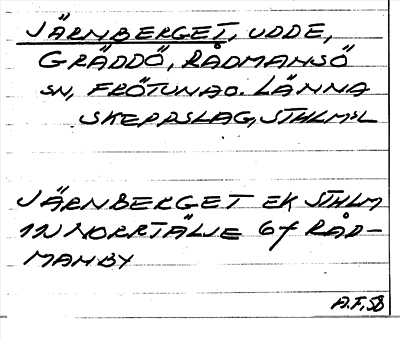 JÄRNBERGET, UDDE,
GRÄDDÖ, RÅDMANSÖ
SN, FRÖTUNA O. LÄNNA
SKEPPSLAG, STHLM:L
JÄRNBERGET EK STHLM
11U NORRTÄLJE 6f RÅD-
MANBY
A.F, 58